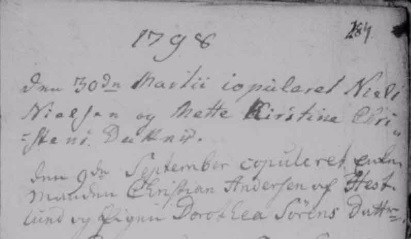 284
1798
den 30dn Martii copuleret Niels
Nielsen og Mette Kirstine Chri-
=stens Datter.
den 9de September copuleret
Manden Christian Andersen af Hest-
lund og Pigen Dorothea Sörens Datter